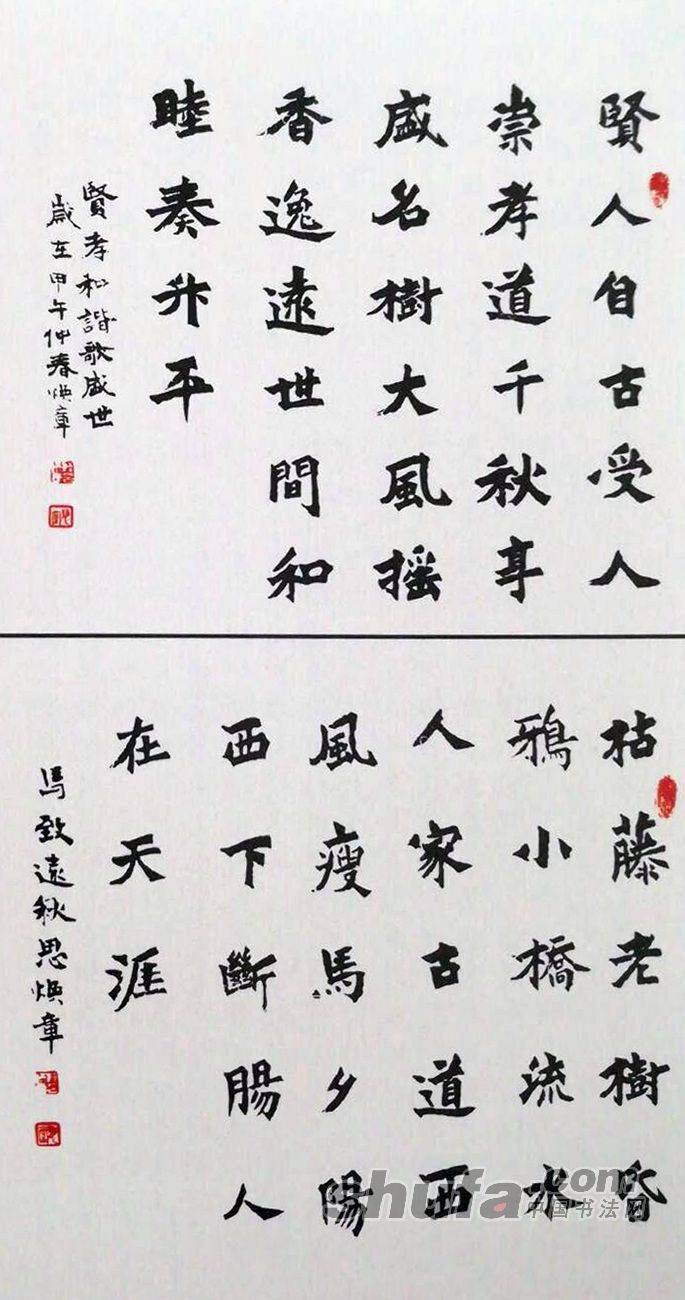 賢人自古受人
崇孝道千秋享
盛名樹大風摇
香逸遠世間和
睦奏升平
賢孝和諧歌盛世
歲在甲午仲春焕章
枯藤老樹昏
鴉小橋流水
人家古道西
風瘦馬夕陽
西下斷腸人
在天涯
馬致遠秋思焕章
shufa.com
中国书法网